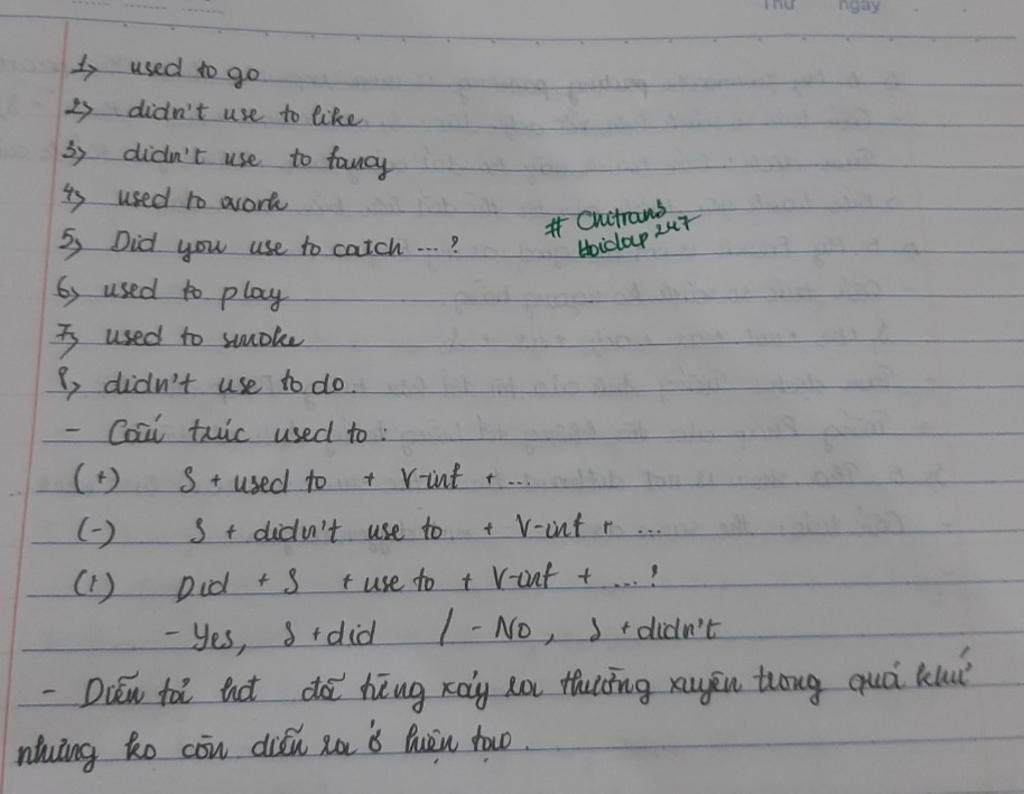 Thứ ngày
1) used to go
2) didn't use to like
3) didn't use to fancy
4) used to work
# Chitrans
5) Did you use to catch ...?
Hoidap247
6) used to play
7) used to smoke
8) didn't use to do.
- Cấu trúc used to:
(+) S + used to + V-inf + ...
(-) S + didn't use to + V-inf + ...
(?) Did + S + use to + V-inf + ...?
- Yes, S + did / - No, S + didn't
- Diễn tả hđ đã từng xảy ra thường xuyên trong quá khứ
nhưng ko còn diễn ra ở hiện tại.